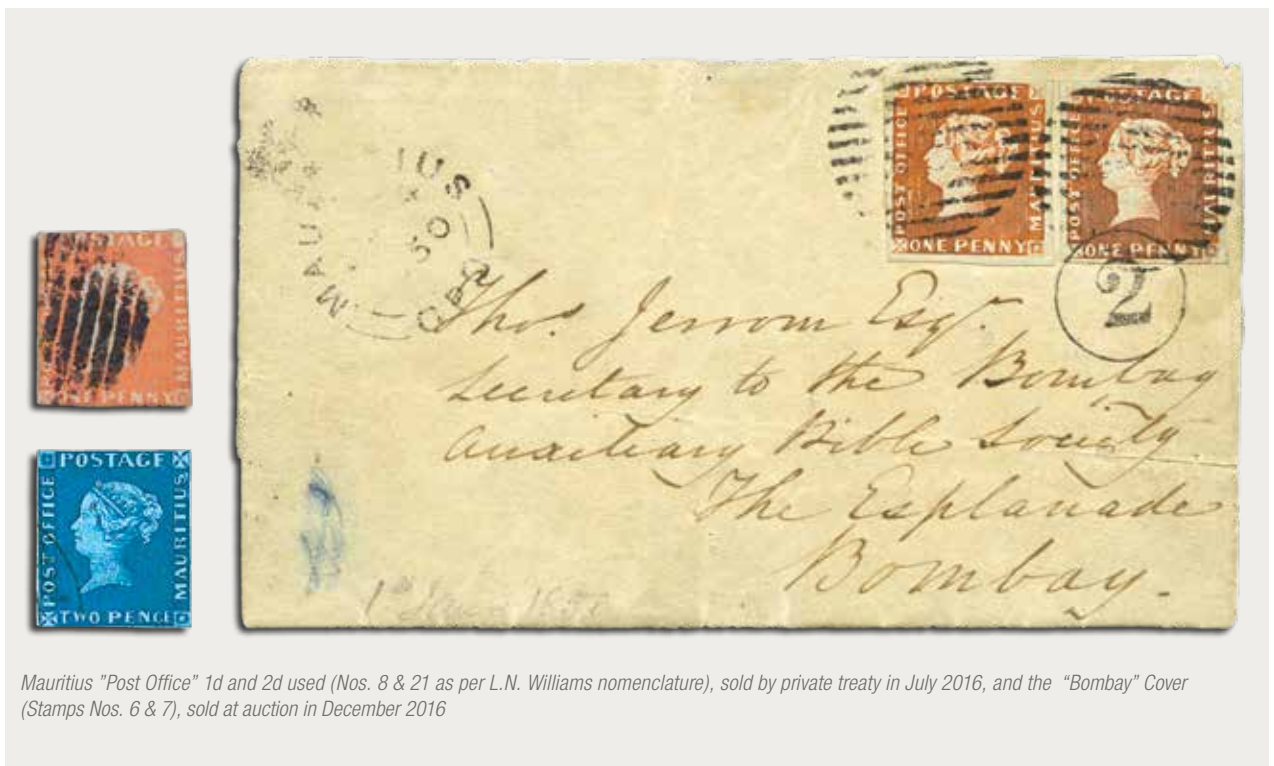 POSTAGE
MAURITIUS
ONE PENNY
POSTAGE
POST OFFICE
MAURITIUS
TWO PENCE
MAURITIUS
50
POSTAGE
POST OFFICE
MAURITIUS
ONE PENNY
POSTAGE
POST OFFICE
MAURITIUS
ONE PENNY
2
Thos. Jerrom Esqr.
Secretary to the Bombay
Auxiliary Bible Society
The Esplanade
Bombay.
Mauritius ”Post Office” 1d and 2d used (Nos. 8 & 21 as per L.N. Williams nomenclature), sold by private treaty in July 2016, and the “Bombay” Cover
(Stamps Nos. 6 & 7), sold at auction in December 2016